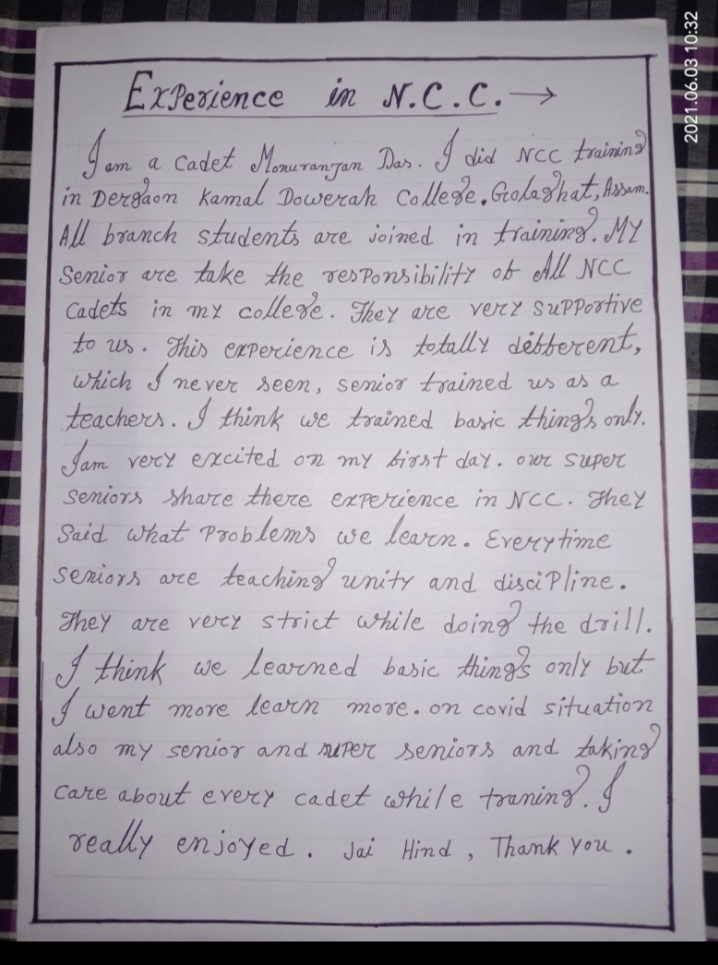 2021.06.03 10:32
Experience in N.C.C. →
I am a Cadet Monuranjan Das. I did NCC training
in Dergaon Kamal Dowerah College. Golaghat, Assam.
All branch students are joined in training. My
Senior are take the responsibility of All NCC
Cadets in my college. They are very supportive
to us. This experience is totally different,
which I never seen, senior trained us as a
teachers. I think we trained basic things only.
I am very excited on my first day. our super
seniors share there experience in NCC. They
Said what Problems we learn. Everytime
seniors are teaching unity and discipline.
They are very strict while doing the drill.
I think we learned basic things only but
I went more learn more. on covid situation
also my senior and super seniors and taking
care about every cadet while traning. I
really enjoyed. Jai Hind, Thank you.